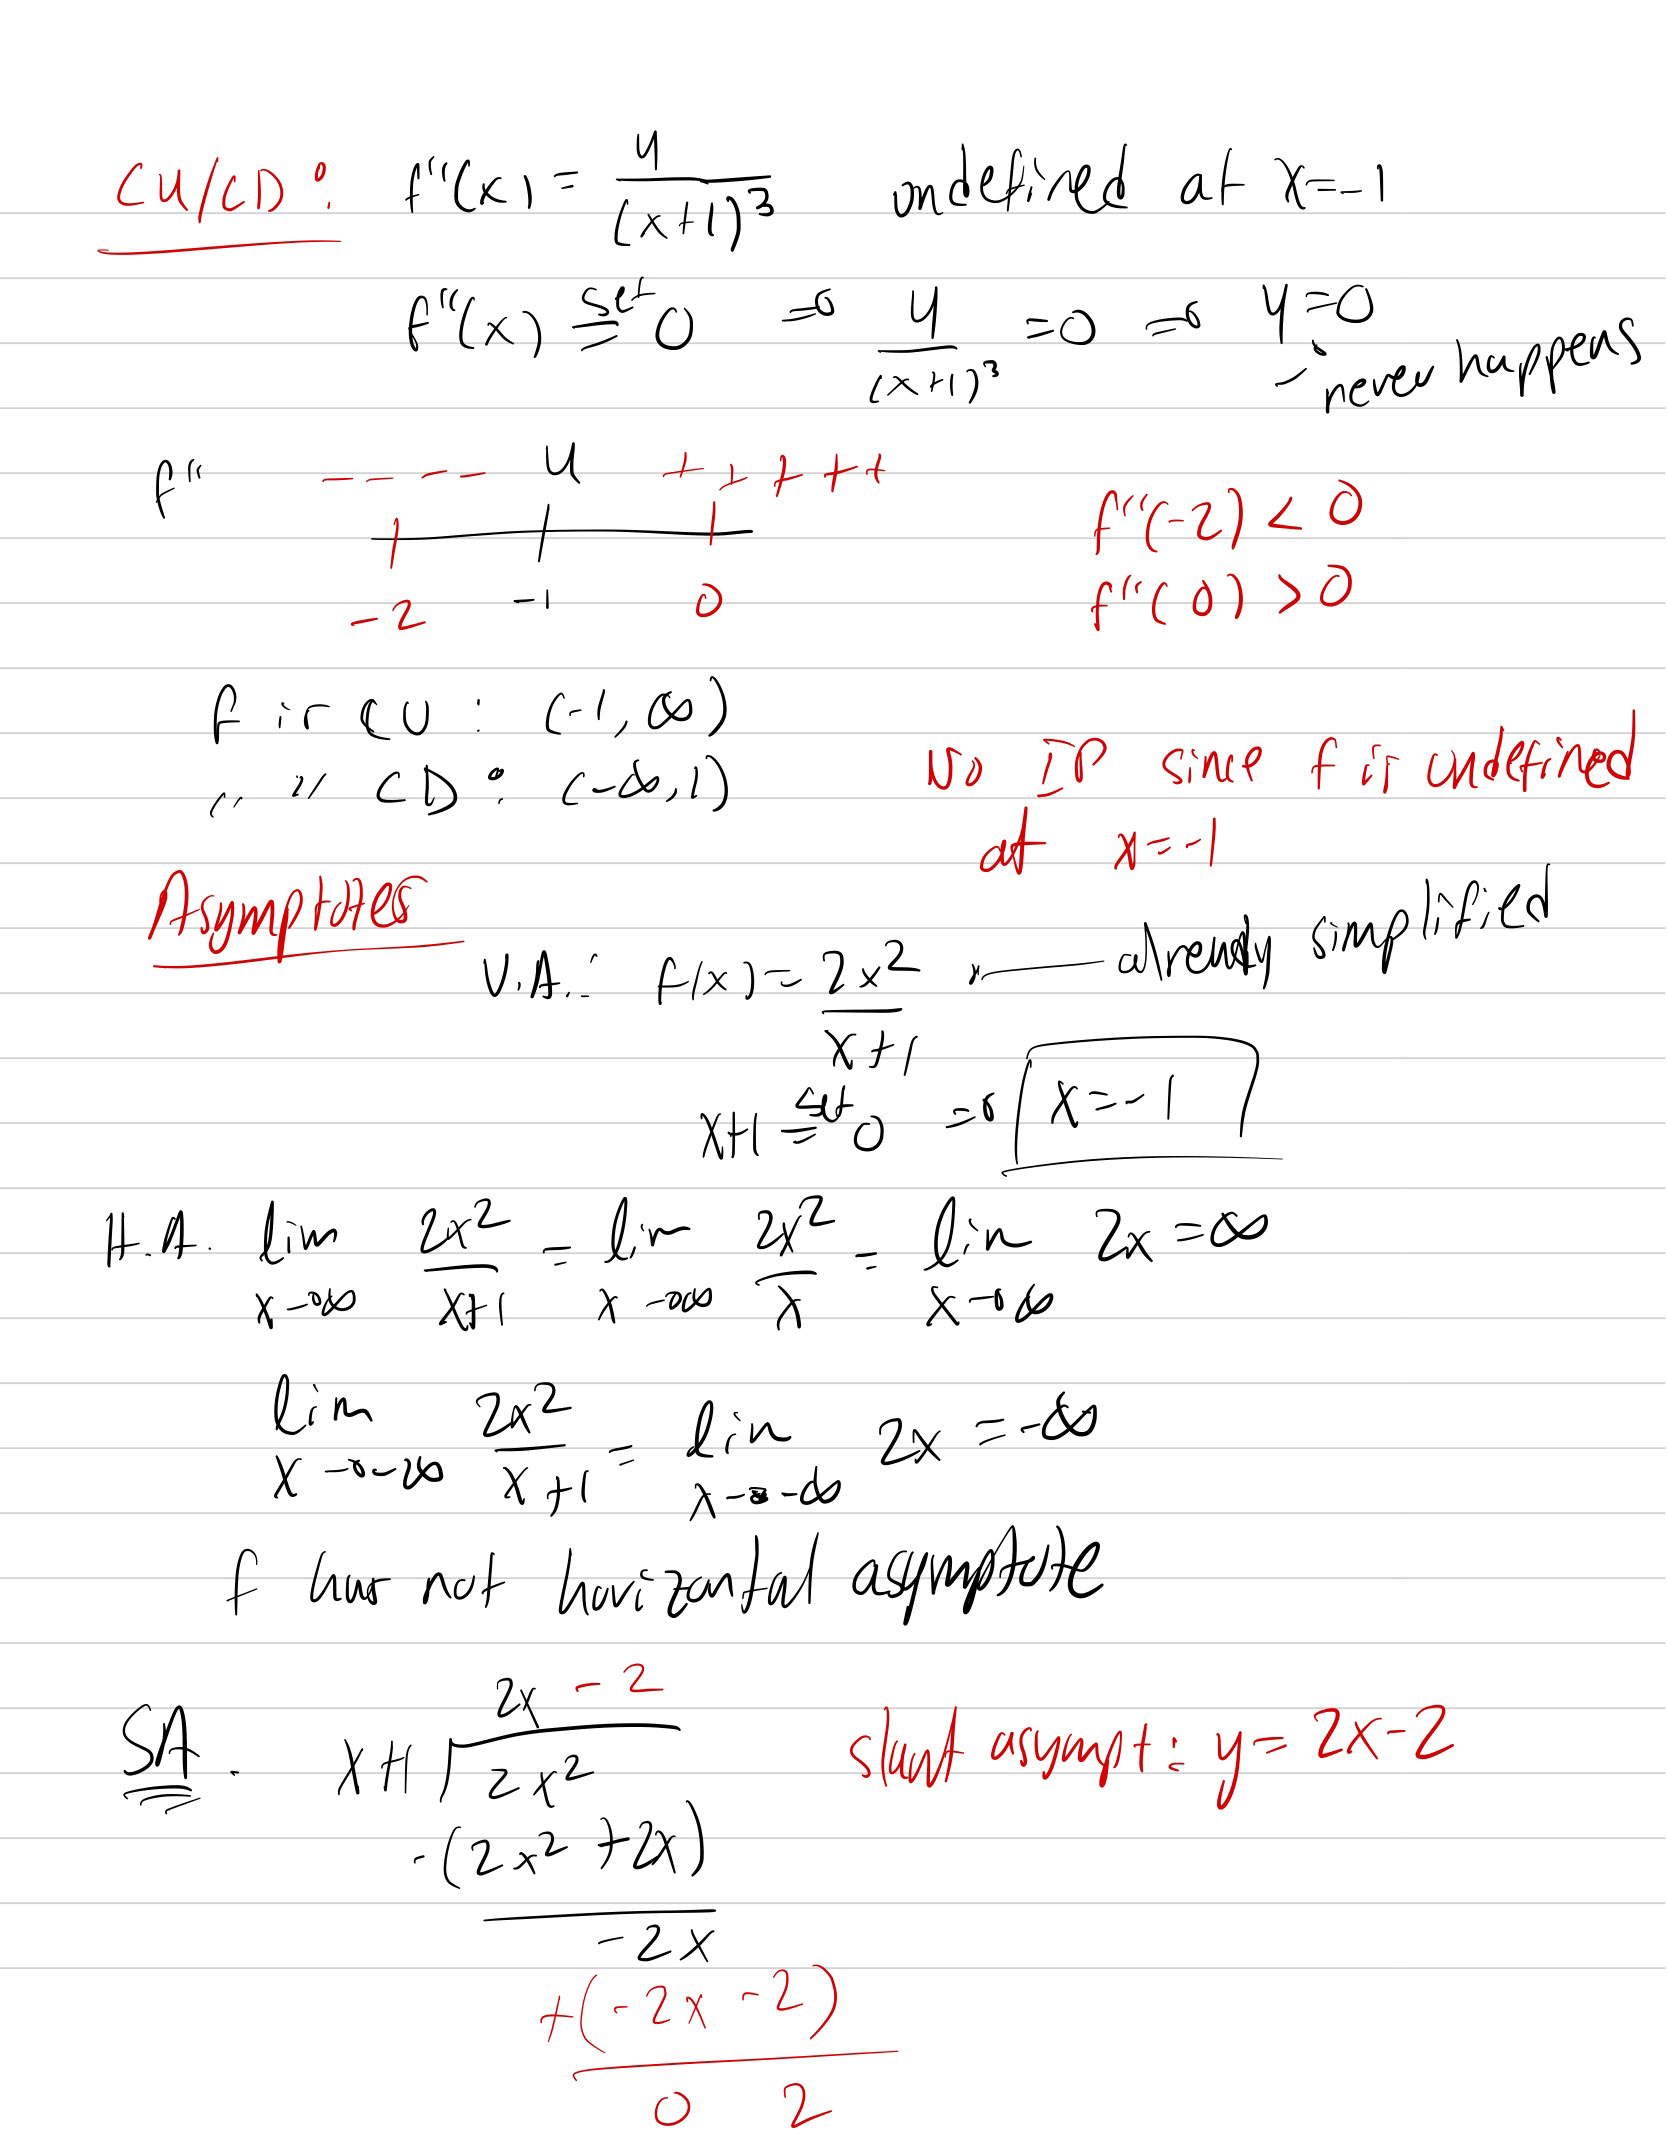 CU/CD: f''(x) = 4/(x+1)^3 undefined at x=-1
f''(x) set= 0 ⇒ 4/(x+1)^3 =0 ⇒ 4=0
never happens
f'' ---- U +++++
-2 -1 0
f''(-2) < 0
f''(0) > 0
f is CU : (-1, ∞)
" " CD : (-∞, 1)
No IP since f is undefined
at x=-1
Asymptotes
V.A.: f(x) = 2x^2/(x+1) already simplified
x+1 set= 0 ⇒ x=-1
H.A. lim x→∞ 2x^2/(x+1) = lim x→∞ 2x^2/x = lim x→∞ 2x = ∞
lim x→-∞ 2x^2/(x+1) = lim x→-∞ 2x = -∞
f has not horizontal asymptote
SA. 2x - 2
x+1 2x^2
-(2x^2 + 2x)
-2x
+(-2x -2)
0 2
slant asympt: y = 2x-2